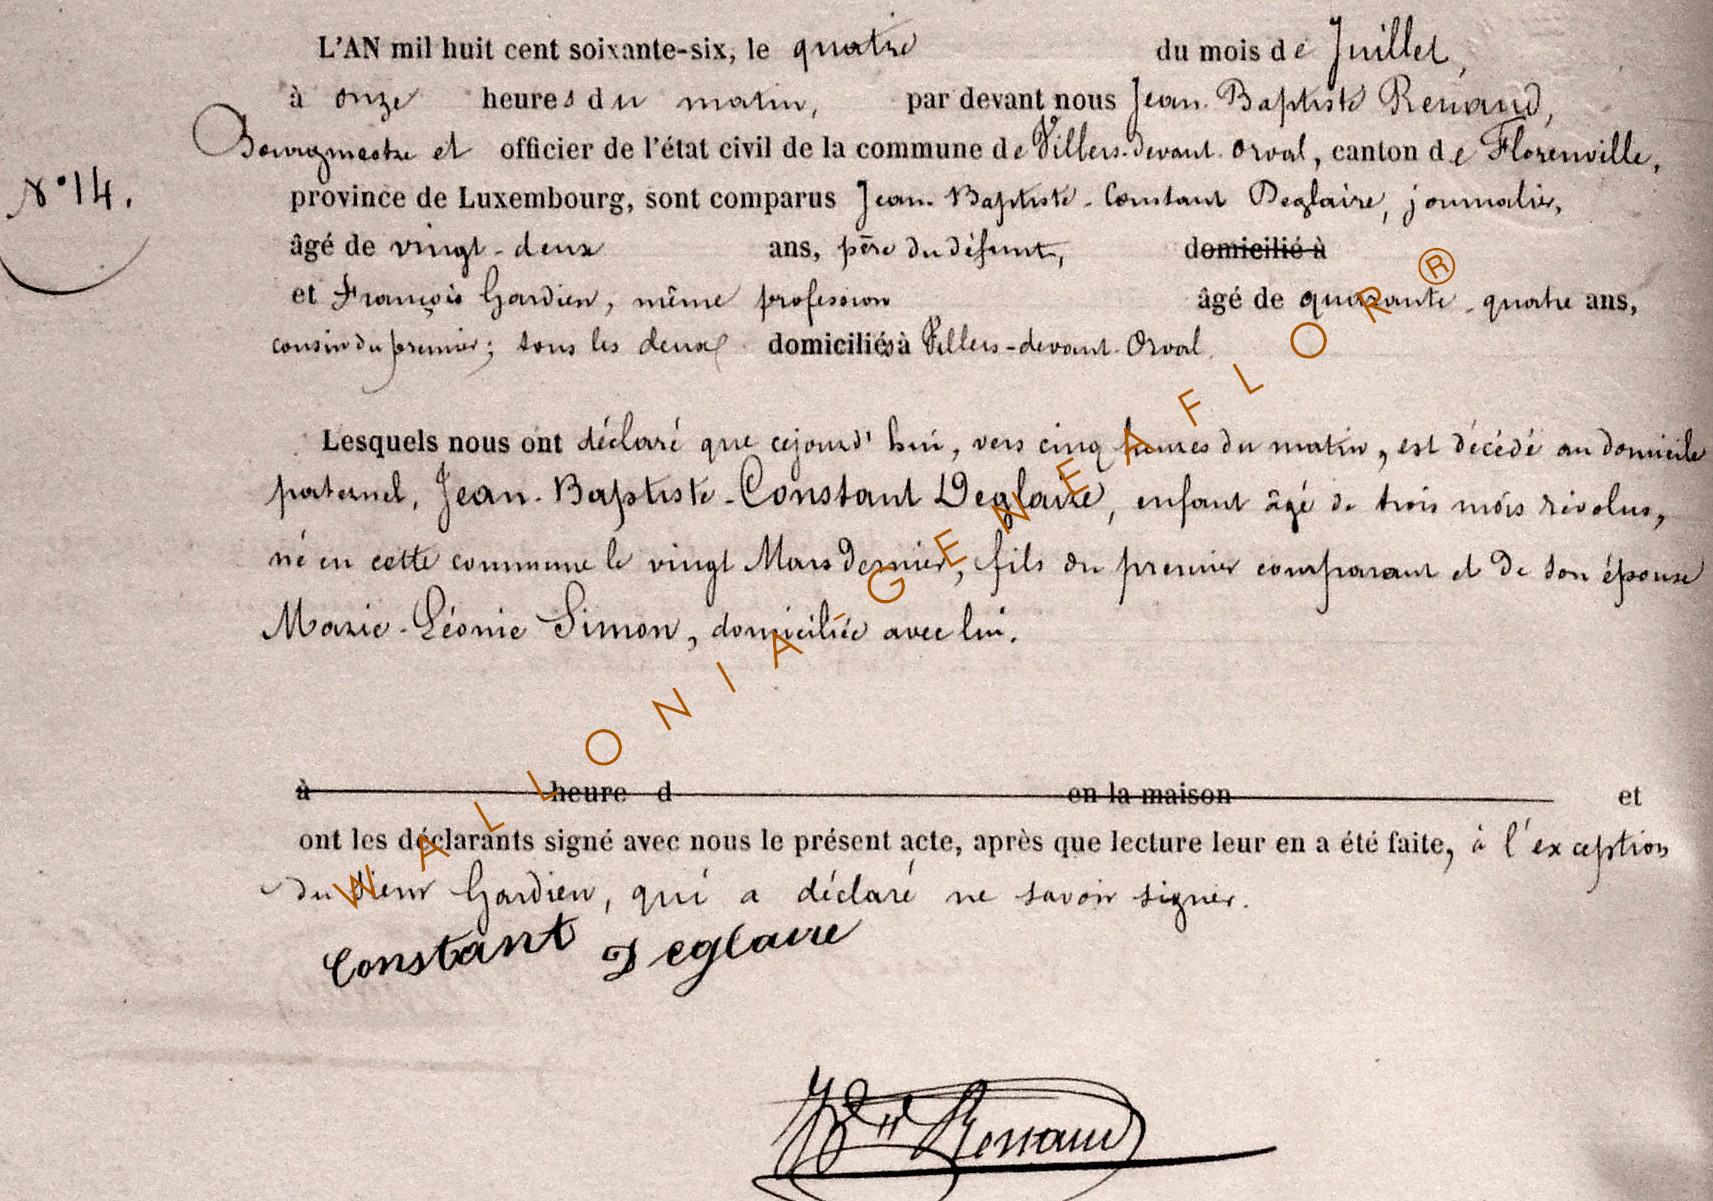 L'AN mil huit cent soixante-six, le quatre du mois de Juillet,
à onze heures du matin, par devant nous Jean-Baptiste Renaud,
Bourgmestre et officier de l'état civil de la commune de Villers-devant-Orval, canton de Florenville,
N° 14.
province de Luxembourg, sont comparus Jean-Baptiste-Constant Deglaire, journalier,
âgé de vingt-deux ans, père du défunt, domicilié à
et François Gardien, même profession âgé de quarante-quatre ans,
cousin du premier; tous les deux domiciliés à Villers-devant-Orval.
Lesquels nous ont déclaré que cejourd'hui, vers cinq heures du matin, est décédé au domicile
paternel, Jean-Baptiste-Constant Deglaire, enfant âgé de trois mois révolus,
né en cette commune le vingt Mars dernier, fils du premier comparant et de son épouse
Marie-Léonie Simon, domiciliée avec lui.
à heure d en la maison et
ont les déclarants signé avec nous le présent acte, après que lecture leur en a été faite, à l'exception
du sieur Gardien, qui a déclaré ne savoir signer.
Constant Deglaire
JBte Renaud
WALLONIA-GENEAFLOR®